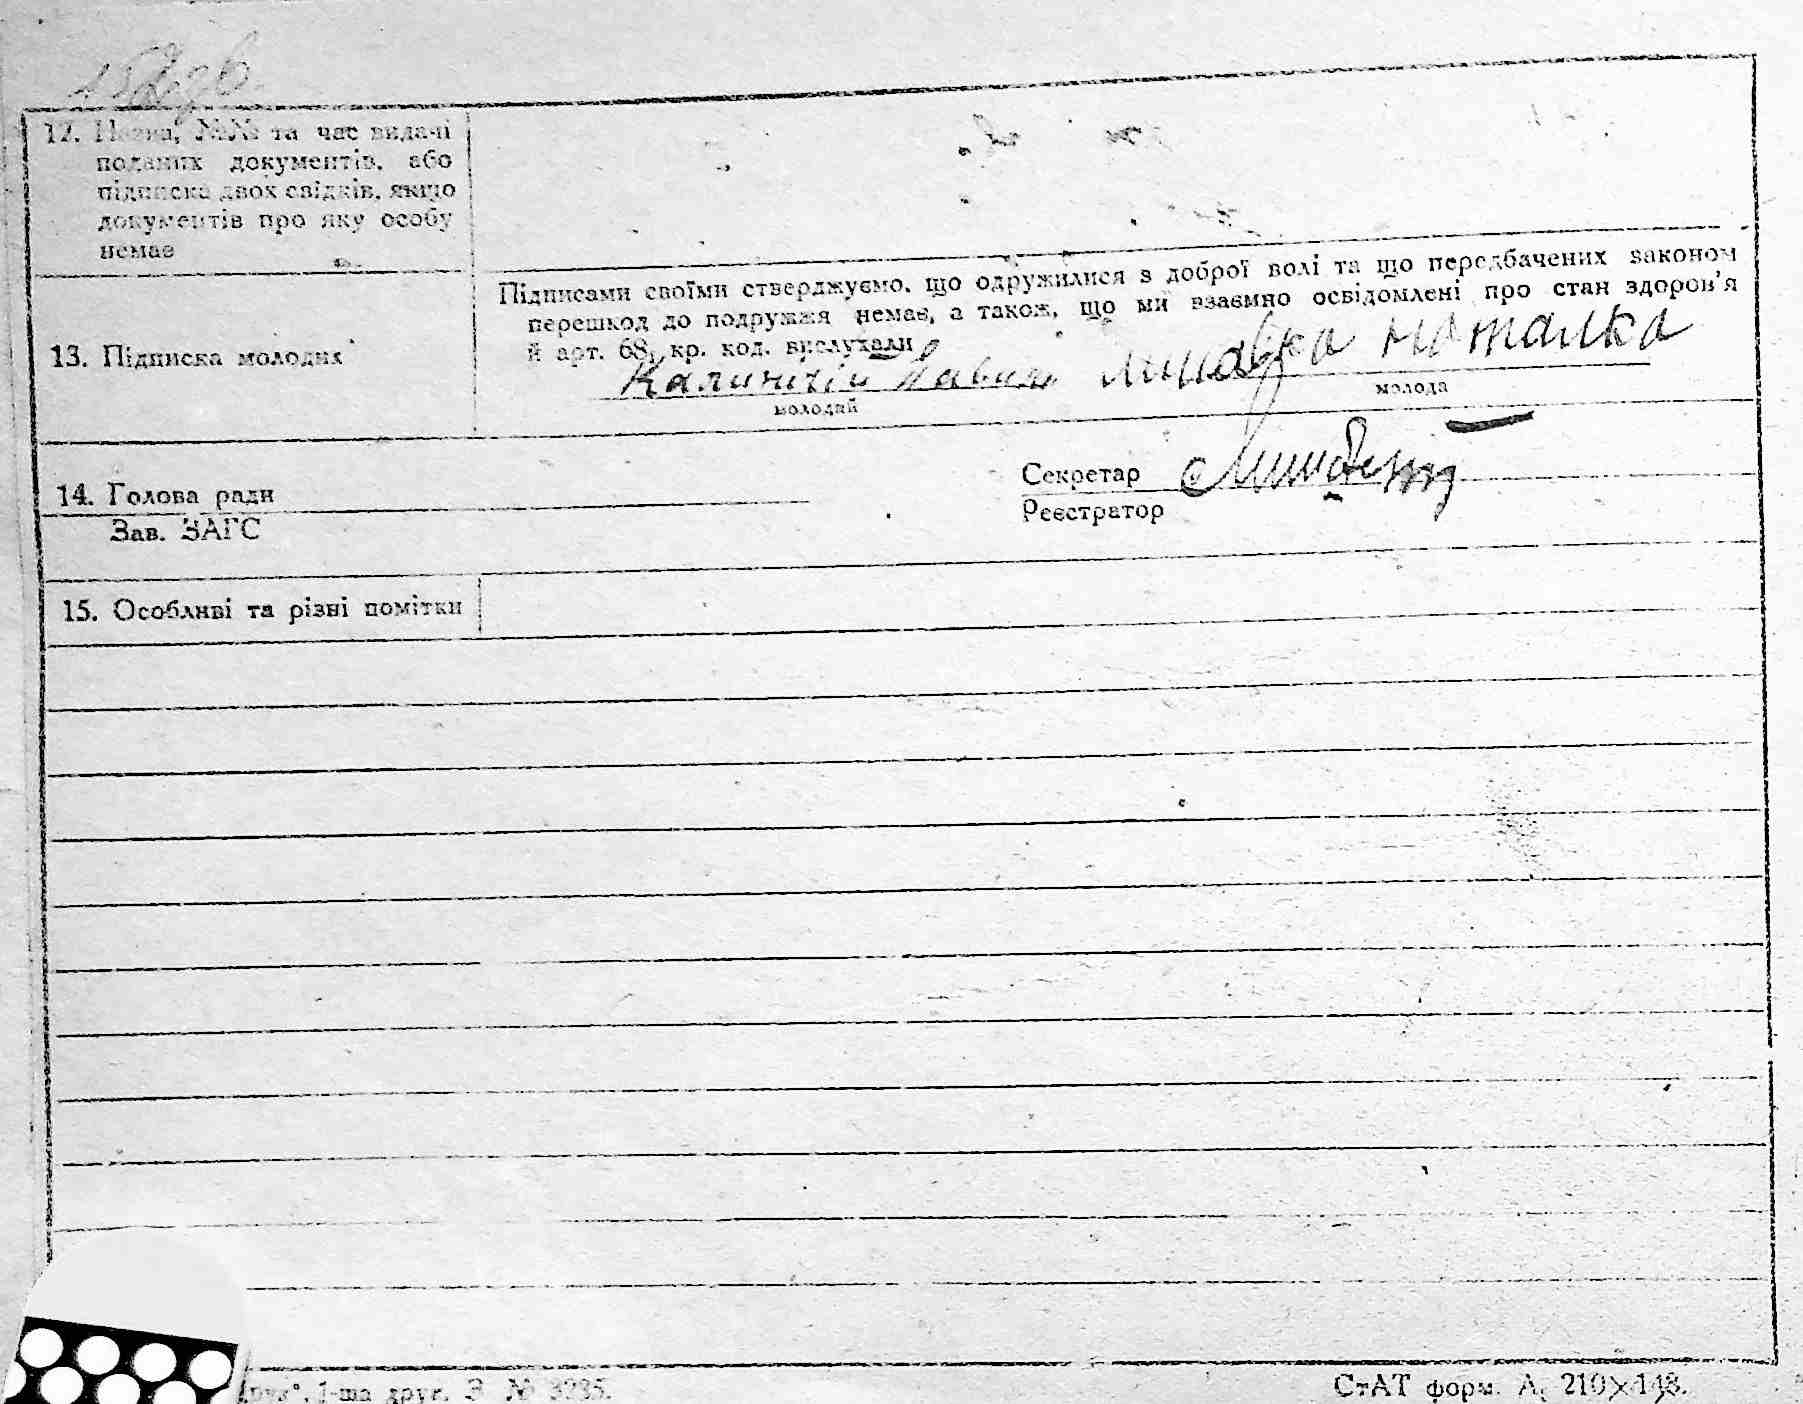 12. Назва, №№ та час видачі
поданих документів, або
підписка двох свідків, якщо
документів про яку особу
немає
Підписами своїми стверджуємо, що одружилися з доброї волі та що передбачених законом
перешкод до подружжя немає, а також, що ми взаємно освідомлені про стан здоров'я
й арт. 68, кр. код. вислухали
13. Підписка молодих
Наталка
молодий
молода
14. Голова ради
Зав. ЗАГС
Секретар
Реєстратор
15. Особливі та різні помітки
1-ша друк. З № 3235.
СтАТ форм. А, 210×148.